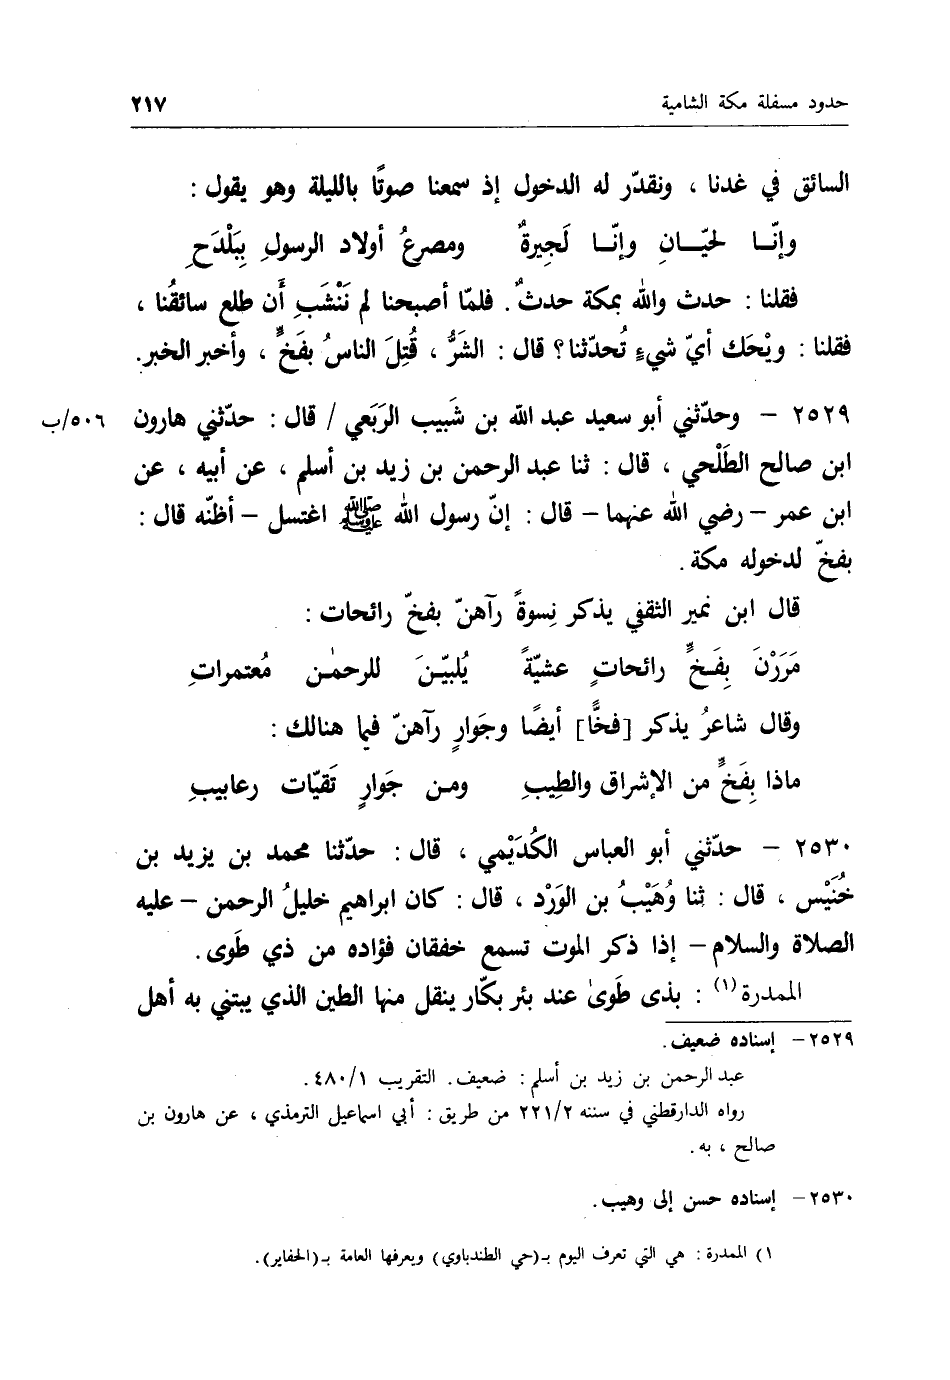 حدود مسفلة مكة الشامية ٢١٧
السائق في غدنا ، ونقدّر له الدخول إذ سمعنا صوتًا بالليلة وهو يقول :
وإنّـا لحيّـانِ وإنّـا لَجيرةٌ ومصرعُ أولاد الرسولِ بِبَلْدَحِ
فقلنا : حدث والله بمكة حدثٌ. فلمّا أصبحنا لم نَنْشَبِ أَن طلع سائقُنا ،
فقلنا : ويْحَك أيّ شيءٍ تُحدّثنا ؟ قال : الشَرُّ ، قُتِلَ الناسُ بفَخٍّ ، وأخبر الخبر.
٢٥٢٩ – وحدّثني أبو سعيد عبد الله بن شَبيب الرَبَعي / قال : حدّثني هارون ٥٠٦/ب
ابن صالح الطَلْحي ، قال : ثنا عبد الرحمن بن زيد بن أسلم ، عن أبيه ، عن
ابن عمر – رضي الله عنهما – قال : إنّ رسول الله ﷺ اغتسل – أظنّه قال :
بفخّ لدخوله مكة .
قال ابن نمير الثقفي يذكر نِسوةً رآهنّ بفخّ رائحات :
مَرَرْنَ بِفَخٍّ رائحاتٍ عشيّةً يُلبيّنَ للرحمٰن مُعتمراتِ
وقال شاعرُ يذكر [فخًّا] أيضًا وجَوارٍ رآهنّ فيما هنالك :
ماذا بِفَخٍّ من الإشراق والطِيبِ ومن جَوارٍ تَقيّات رعابيبِ
٢٥٣٠ – حدّثني أبو العباس الكُدَيْمي ، قال : حدّثنا محمد بن يزيد بن
خُنَيْس ، قال : ثنا وُهَيْبُ بن الوَرْد ، قال : كان ابراهيم خليلُ الرحمن – عليه
الصلاة والسلام – إذا ذكر الموت تسمع خفقان فؤاده من ذي طَوى .
الممدرة(١) : بذى طَوىٰ عند بئر بكّار ينقل منها الطين الذي يبتني به أهل
٢٥٢٩ – إسناده ضعيف .
عبد الرحمن بن زيد بن أسلم : ضعيف . التقريب ٤٨٠/١ .
رواه الدارقطني في سننه ٢٢١/٢ من طريق : أبي اسماعيل الترمذي ، عن هارون بن
صالح ، به .
٢٥٣٠ – إسناده حسن إلى وهيب .
١) الممدرة : هي التي تعرف اليوم بـ (حي الطندباوي) ويعرفها العامة بـ (الحفاير) .